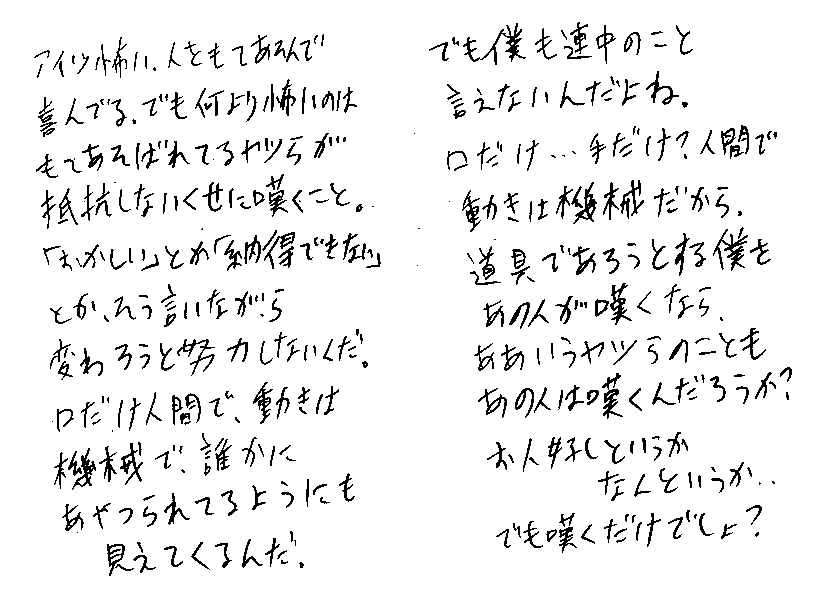 アイツ怖い、人をもてあそんで
喜んでる。でも何より怖いのは
もてあそばれてるヤツらが
抵抗しないくせに嘆くこと。
「おかしい」とか「納得できない」
とか、そう言いながら
変わろうと努力しないんだ。
口だけ人間で、動きは
機械で、誰かに
あやつられてるようにも
見えてくるんだ。
でも僕も連中のこと
言えないんだよね。
口だけ…手だけ?人間で
動きは機械だから、
道具であろうとする僕を
あの人が嘆くなら、
ああいうヤツらのことも
あの人は嘆くんだろうか?
お人好しというか
なんというか..
でも嘆くだけでしょ?